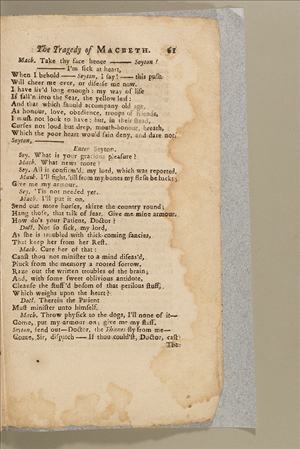 The Tragedy of MACBETH. 61
Mach. Take thy face hence —— Seyton!
—— I'm sick at heart,
When I behold —— Seyton, I say! —— this push
Will cheer me ever, or disease me now.
I have liv'd long enough: my way of life
Is fall'n into the Sear, the yellow leaf:
And that which should accompany old age,
As honour, love, obedience, troops of friends,
I must not look to have: but, in their stead,
Curses not loud but deep, mouth-honour, breath,
Which the poor heart would fain deny, and dare not.
Seyton, ——
Enter Seyton.
Sey. What is your gracious pleasure?
Macb. What news more?
Sey. All is confirm'd, my lord, which was reported.
Macb. I'll fight, 'till from my bones my flesh be hackt;
Give me my armour.
Sey. 'Tis not needed yet.
Macb. I'll put it on,
Send out more horses, skirre the country round;
Hang those, that talk of fear. Give me mine armour.
How do's your Patient, Doctor?
Doct. Not so sick, my lord,
As she is troubled with thick-coming fancies,
That keep her from her Rest.
Macb. Cure her of that:
Canst thou not minister to a mind diseas'd,
Pluck from the memory a rooted sorrow,
Raze out the written troubles of the brain;
And, with some sweet oblivious antidote,
Cleanse the stuff'd bosom of that perilous stuff,
Which weighs upon the heart?
Doct. Therein the Patient
Must minister unto himself.
Macb. Throw physick to the dogs, I'll none of it—
Come, put my armour on; give me my staff.
Seyton, send out—Doctor, the Thanes fly from me—
Come, Sir, dispatch —— If thou could'st, Doctor, cast
The